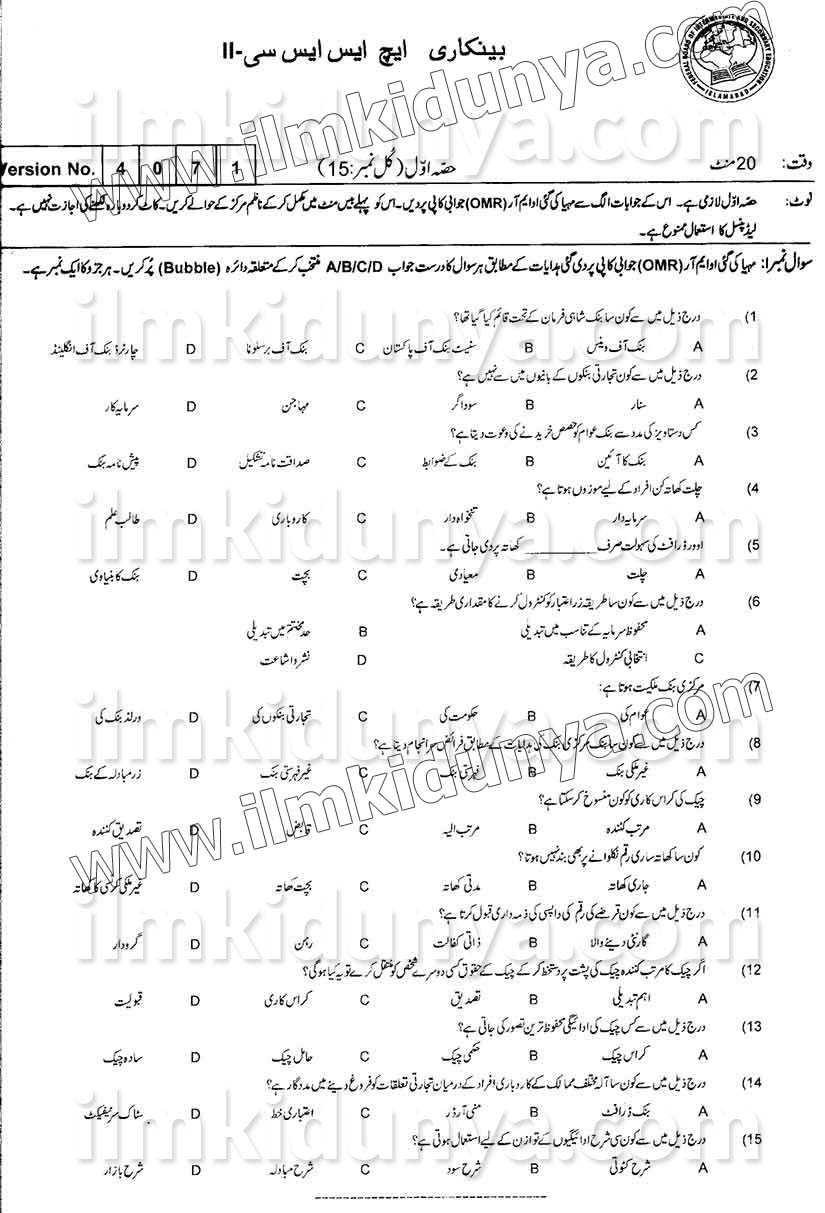 FEDERAL BOARD OF INTERMEDIATE AND SECONDARY EDUCATION
ISLAMABAD
بینکاری ایچ ایس ایس سی-II
وقت: 20 منٹ حصّہ اوّل (کُل نمبر: 15) Version No. 4 0 7 1
نوٹ: حصّہ اوّل لازمی ہے۔ اس کے جوابات الگ سے مہیا کی گئی او ایم آر (OMR) جوابی کاپی پر دیں۔ اس کو پہلے بیس منٹ میں مکمل کر کے ناظم مرکز کے حوالے کریں۔ کاٹ کر دوبارہ لکھنے کی اجازت نہیں ہے۔
لیڈ پنسل کا استعمال ممنوع ہے۔
سوال نمبر ۱: مہیا کی گئی او ایم آر (OMR) جوابی کاپی پر دی گئی ہدایات کے مطابق ہر سوال کا درست جواب A/B/C/D منتخب کر کے متعلقہ دائرہ (Bubble) پُر کریں۔ ہر جزو کا ایک نمبر ہے۔
(1 درج ذیل میں سے کون سا بنک شاہی فرمان کے تحت قائم کیا گیا تھا؟
A بنک آف وینس B سٹیٹ بنک آف پاکستان C بنک آف برسلونا D چارٹرڈ بنک آف انگلینڈ
(2 درج ذیل میں سے کون تجارتی بنکوں کے بانیوں میں سے نہیں ہے؟
A سنار B سوداگر C مہاجن D سرمایہ کار
(3 کس دستاویز کی مدد سے بنک عوام کو حصص خریدنے کی دعوت دیتا ہے؟
A بنک کا آئین B بنک کے ضوابط C صداقت نامہ تشکیل D پیش نامہ بنک
(4 چلت کھاتہ کن افراد کے لیے موزوں ہوتا ہے؟
A سرمایہ دار B تنخواہ دار C کاروباری D طالب علم
(5 اوورڈرافٹ کی سہولت صرف __________ کھاتہ پر دی جاتی ہے۔
A چلت B معیادی C بچت D بنک کا بنیادی
(6 درج ذیل میں سے کون سا طریقہ زر اعتبار کو کنٹرول کرنے کا مقداری طریقہ ہے؟
A محفوظ سرمایہ کے تناسب میں تبدیلی B حد مختتم میں تبدیلی
C انتخابی کنٹرول کا طریقہ D نشر و اشاعت
(7 مرکزی بنک ملکیت ہوتا ہے:
A عوام کی B حکومت کی C تجارتی بنکوں کی D ورلڈ بنک کی
(8 درج ذیل میں سے کون سا بنک مرکزی بنک کی ہدایات کے مطابق فرائض سر انجام دیتا ہے؟
A غیر ملکی بنک B فہرستی بنک C غیر فہرستی بنک D زرمبادلہ کے بنک
(9 چیک کی کراس کاری کو کون منسوخ کر سکتا ہے؟
A مرتب کنندہ B مرتب الیہ C قابض D تصدیق کنندہ
(10 کون سا کھاتہ ساری رقم نکلوانے پر بھی بند نہیں ہوتا؟
A جاری کھاتہ B مدتی کھاتہ C بچت کھاتہ D غیر ملکی کرنسی کا کھاتہ
(11 درج ذیل میں سے کون قرضے کی رقم کی واپسی کی ذمہ داری قبول کرتا ہے؟
A گارنٹی دینے والا B ذاتی کفالت C رہن D گرودار
(12 اگر چیک کا مرتب کنندہ چیک کی پشت پر دستخط کر کے چیک کے حقوق کسی دوسرے شخص کو منتقل کرے تو یہ کیا ہو گی؟
A اہم تبدیلی B تصدیق C کراس کاری D قبولیت
(13 درج ذیل میں سے کس چیک کی ادائیگی محفوظ ترین تصور کی جاتی ہے؟
A کراس چیک B حکمی چیک C حامل چیک D سادہ چیک
(14 درج ذیل میں سے کون سا آلہ مختلف ممالک کے کاروباری افراد کے درمیان تجارتی تعلقات کو فروغ دینے میں مددگار ہے؟
A بنک ڈرافٹ B منی آرڈر C اعتباری خط D سٹاک سرٹیفکیٹ
(15 درج ذیل میں سے کون سی شرح ادائیگیوں کے توازن کے لیے استعمال ہوتی ہے؟
A شرح کٹوتی B شرح سود C شرح مبادلہ D شرح بازار
www.ilmkidunya.com
ilmkidunya.com